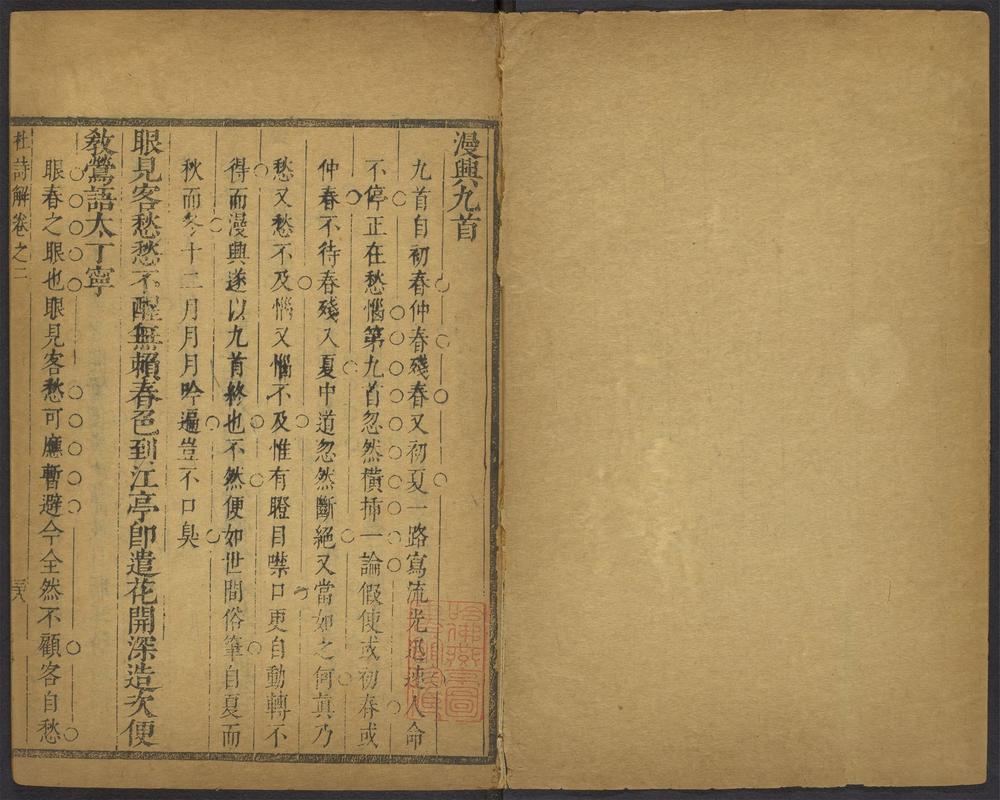 漫興九首
九首自初春仲春殘春又初夏一路寫流光迅速人命
不停正在愁惱第九首忽然橫揷一論假使或初春或
仲春不待春殘入夏中道忽然斷絕又當如之何眞乃
愁又愁不及惱又惱不及惟有瞪目噤口更自動轉不
得而漫興遂以九首終也不然便如世間俗筆自夏而
秋而冬十二月月月吟遍豈不口臭
眼見客愁愁不醒無賴春色到江亭卽遣花開深造次便
敎鶯語太丁寧
眼春之眼也眼見客愁可應暫避今全然不顧客自愁
杜詩解卷之二